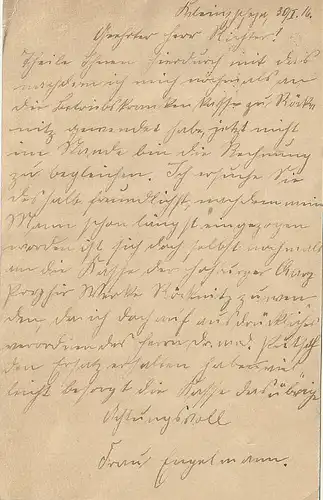 Kleinzschepa, 30/I. 16.
Geehrter Herr Richter!
Theile Ihnen hierdurch mit daß
nachdem ich mich nochmals an
die Betriebskrankenkasse zu Röck=
nitz gewendet habe, jetzt nicht
im Stande bin die Rechnung
zu begleichen. Ich ersuche Sie
deshalb freundlichst, nachdem mein
Mann schon längst eingezogen
worden ist sich doch selbst nochmals
an die Kasse der Hohburger Quarz
Porphyr Werke Röcknitz zu wen
den da ich doch auf ausdrückliches
verordnen des Herrn Dr. med.
den Ersatz erhalten habe, viel
leicht besorgt die Kasse das übrige
Achtungsvoll
Frau Engelmann.